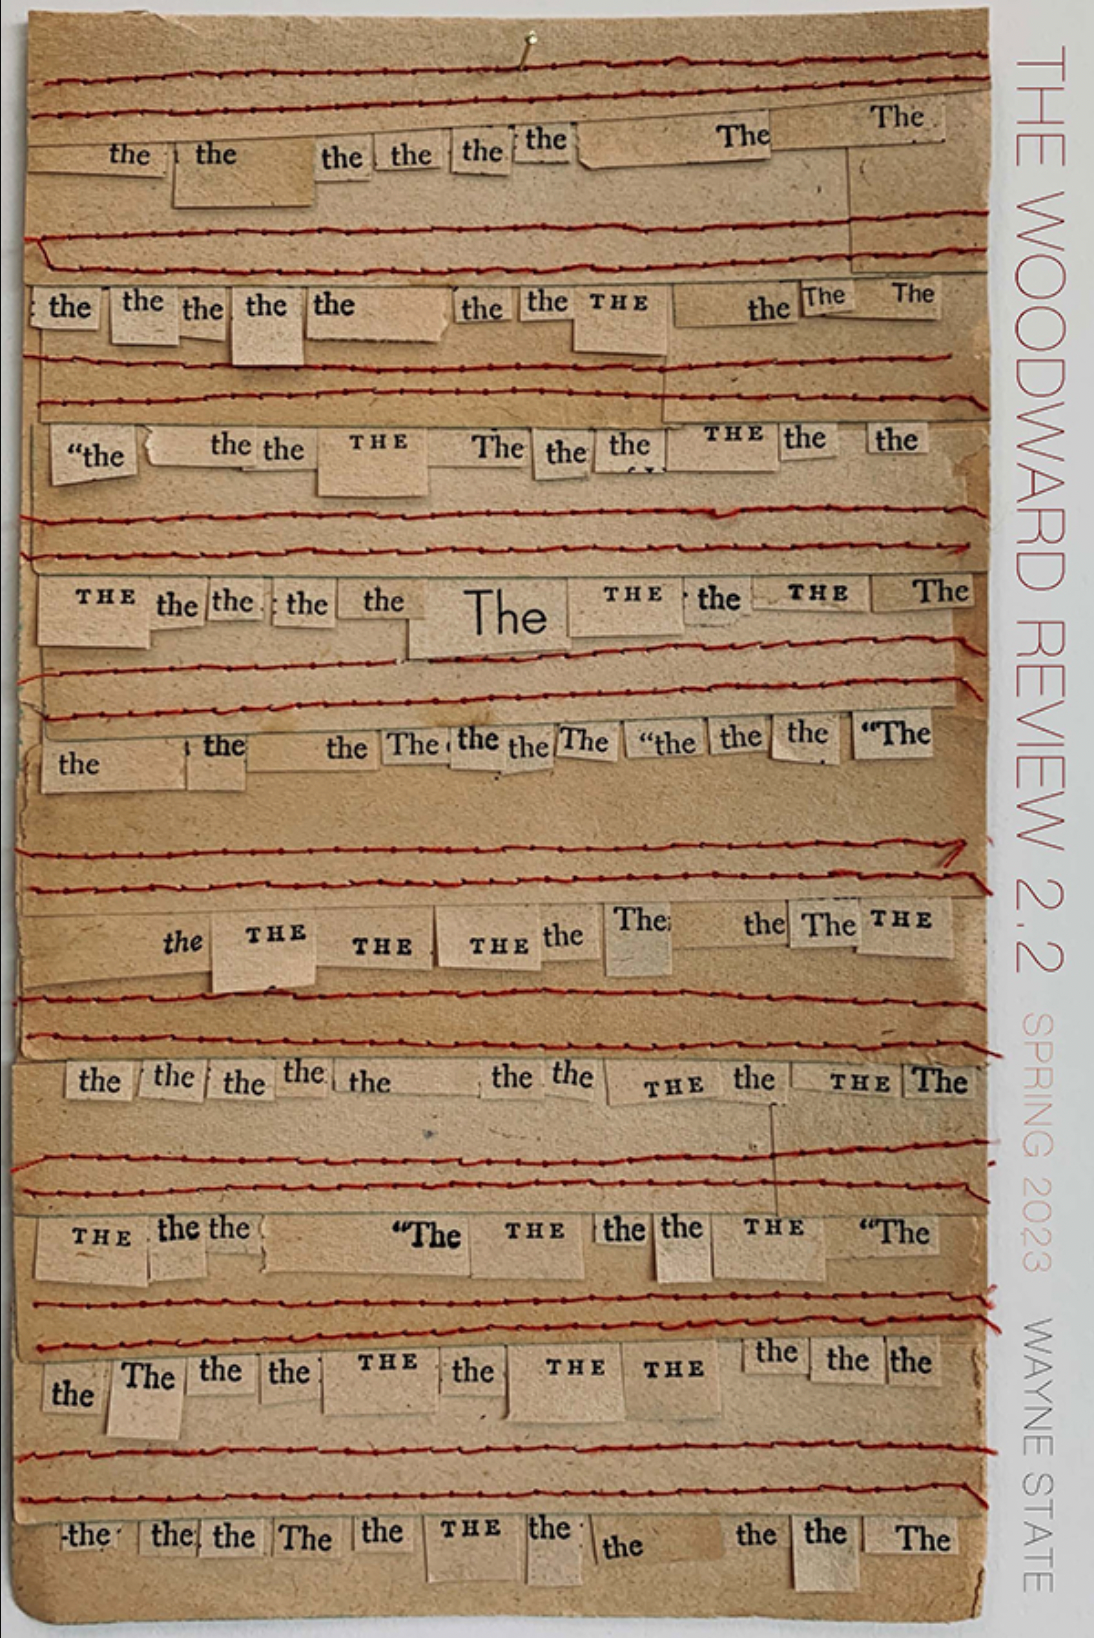 the the the the the the The The
the the the the the the the THE the The The
“the the the THE The the the THE the the
THE the the the the The THE the THE The
the the the The the the The “the the the “The
the THE THE THE the The the The THE
the the the the the the the THE the THE The
THE the the “The THE the the THE “The
the The the the THE the THE THE the the the
-the the the The the THE the the the the The
THE WOODWARD REVIEW 2.2 SPRING 2023 WAYNE STATE